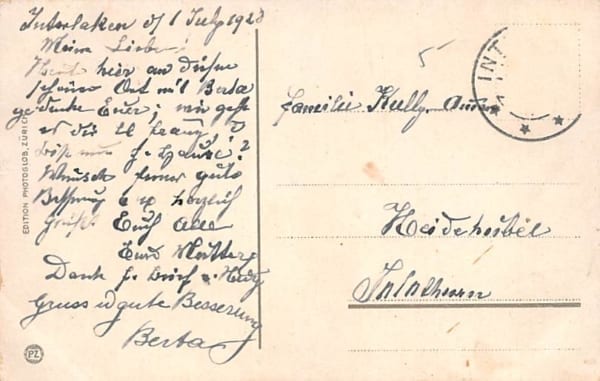 Interlaken d/ 1 July 1920
Meine Lieben!
hier an diesem
schönen Ort mit Berta
gedenke Euer; wie geht
es
f. Hause?
Wünsch ferner gute
Besserung u herzlich
grüsst Euch Alle
Eure Mutter
Dank f. Brief v. Hedy
Gruss u gute Besserung
Berta
EDITION PHOTOGLOB, ZÜRICH
PZ
5
INT
Familie Kully
Heidehubel
Solothurn